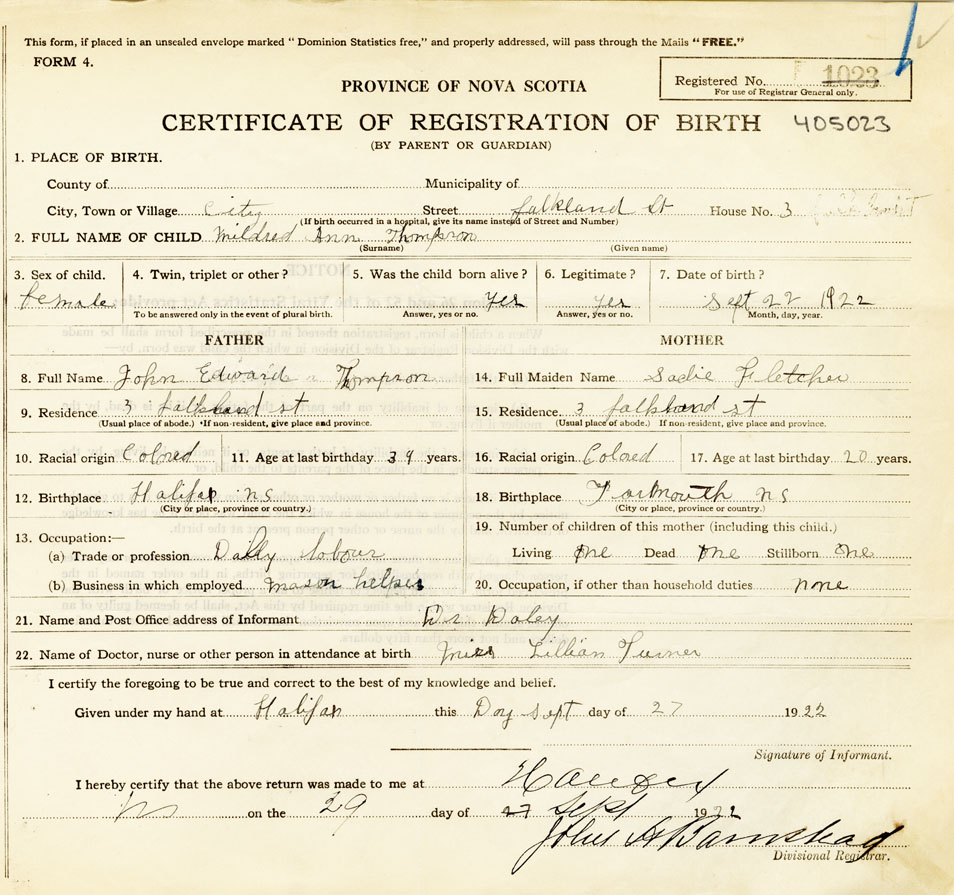 This form, if placed in an unsealed envelope marked "Dominion Statistics free," and properly addressed, will pass through the Mails "FREE."
FORM 4.
Registered No. 1023
For use of Registrar General only.
PROVINCE OF NOVA SCOTIA
CERTIFICATE OF REGISTRATION OF BIRTH 405023
(BY PARENT OR GUARDIAN)
1. PLACE OF BIRTH.
County of Municipality of
City, Town or Village City Street falkland St House No. 3
(If birth occurred in a hospital, give its name instead of Street and Number)
2. FULL NAME OF CHILD Mildred Ann Thompson
(Surname) (Given name)
3. Sex of child. 4. Twin, triplet or other? 5. Was the child born alive? 6. Legitimate? 7. Date of birth?
female Yes Yes Sept 22 1922
To be answered only in the event of plural birth. Answer, yes or no. Answer, yes or no. Month, day, year.
FATHER MOTHER
8. Full Name John Edward Thompson 14. Full Maiden Name Sadie Fletcher
9. Residence 3 falkland st 15. Residence 3 falkland st
(Usual place of abode.) *If non-resident, give place and province. (Usual place of abode.) If non-resident, give place and province.
10. Racial origin Colored 11. Age at last birthday 39 years. 16. Racial origin Colored 17. Age at last birthday 20 years.
12. Birthplace Halifax ns 18. Birthplace Dartmouth ns
(City or place, province or country.) (City or place, province or country.)
13. Occupation:— 19. Number of children of this mother (including this child.)
(a) Trade or profession Dally labour Living One Dead One Stillborn One
(b) Business in which employed mason helper 20. Occupation, if other than household duties none
21. Name and Post Office address of Informant Dr Daley
22. Name of Doctor, nurse or other person in attendance at birth miss Lillian Turner
I certify the foregoing to be true and correct to the best of my knowledge and belief.
Given under my hand at Halifax this Day sept day of 27 1922
Signature of Informant.
I hereby certify that the above return was made to me at Halifax
NS on the 29 day of 27 Sept 1922
John A Barnstead
Divisional Registrar.